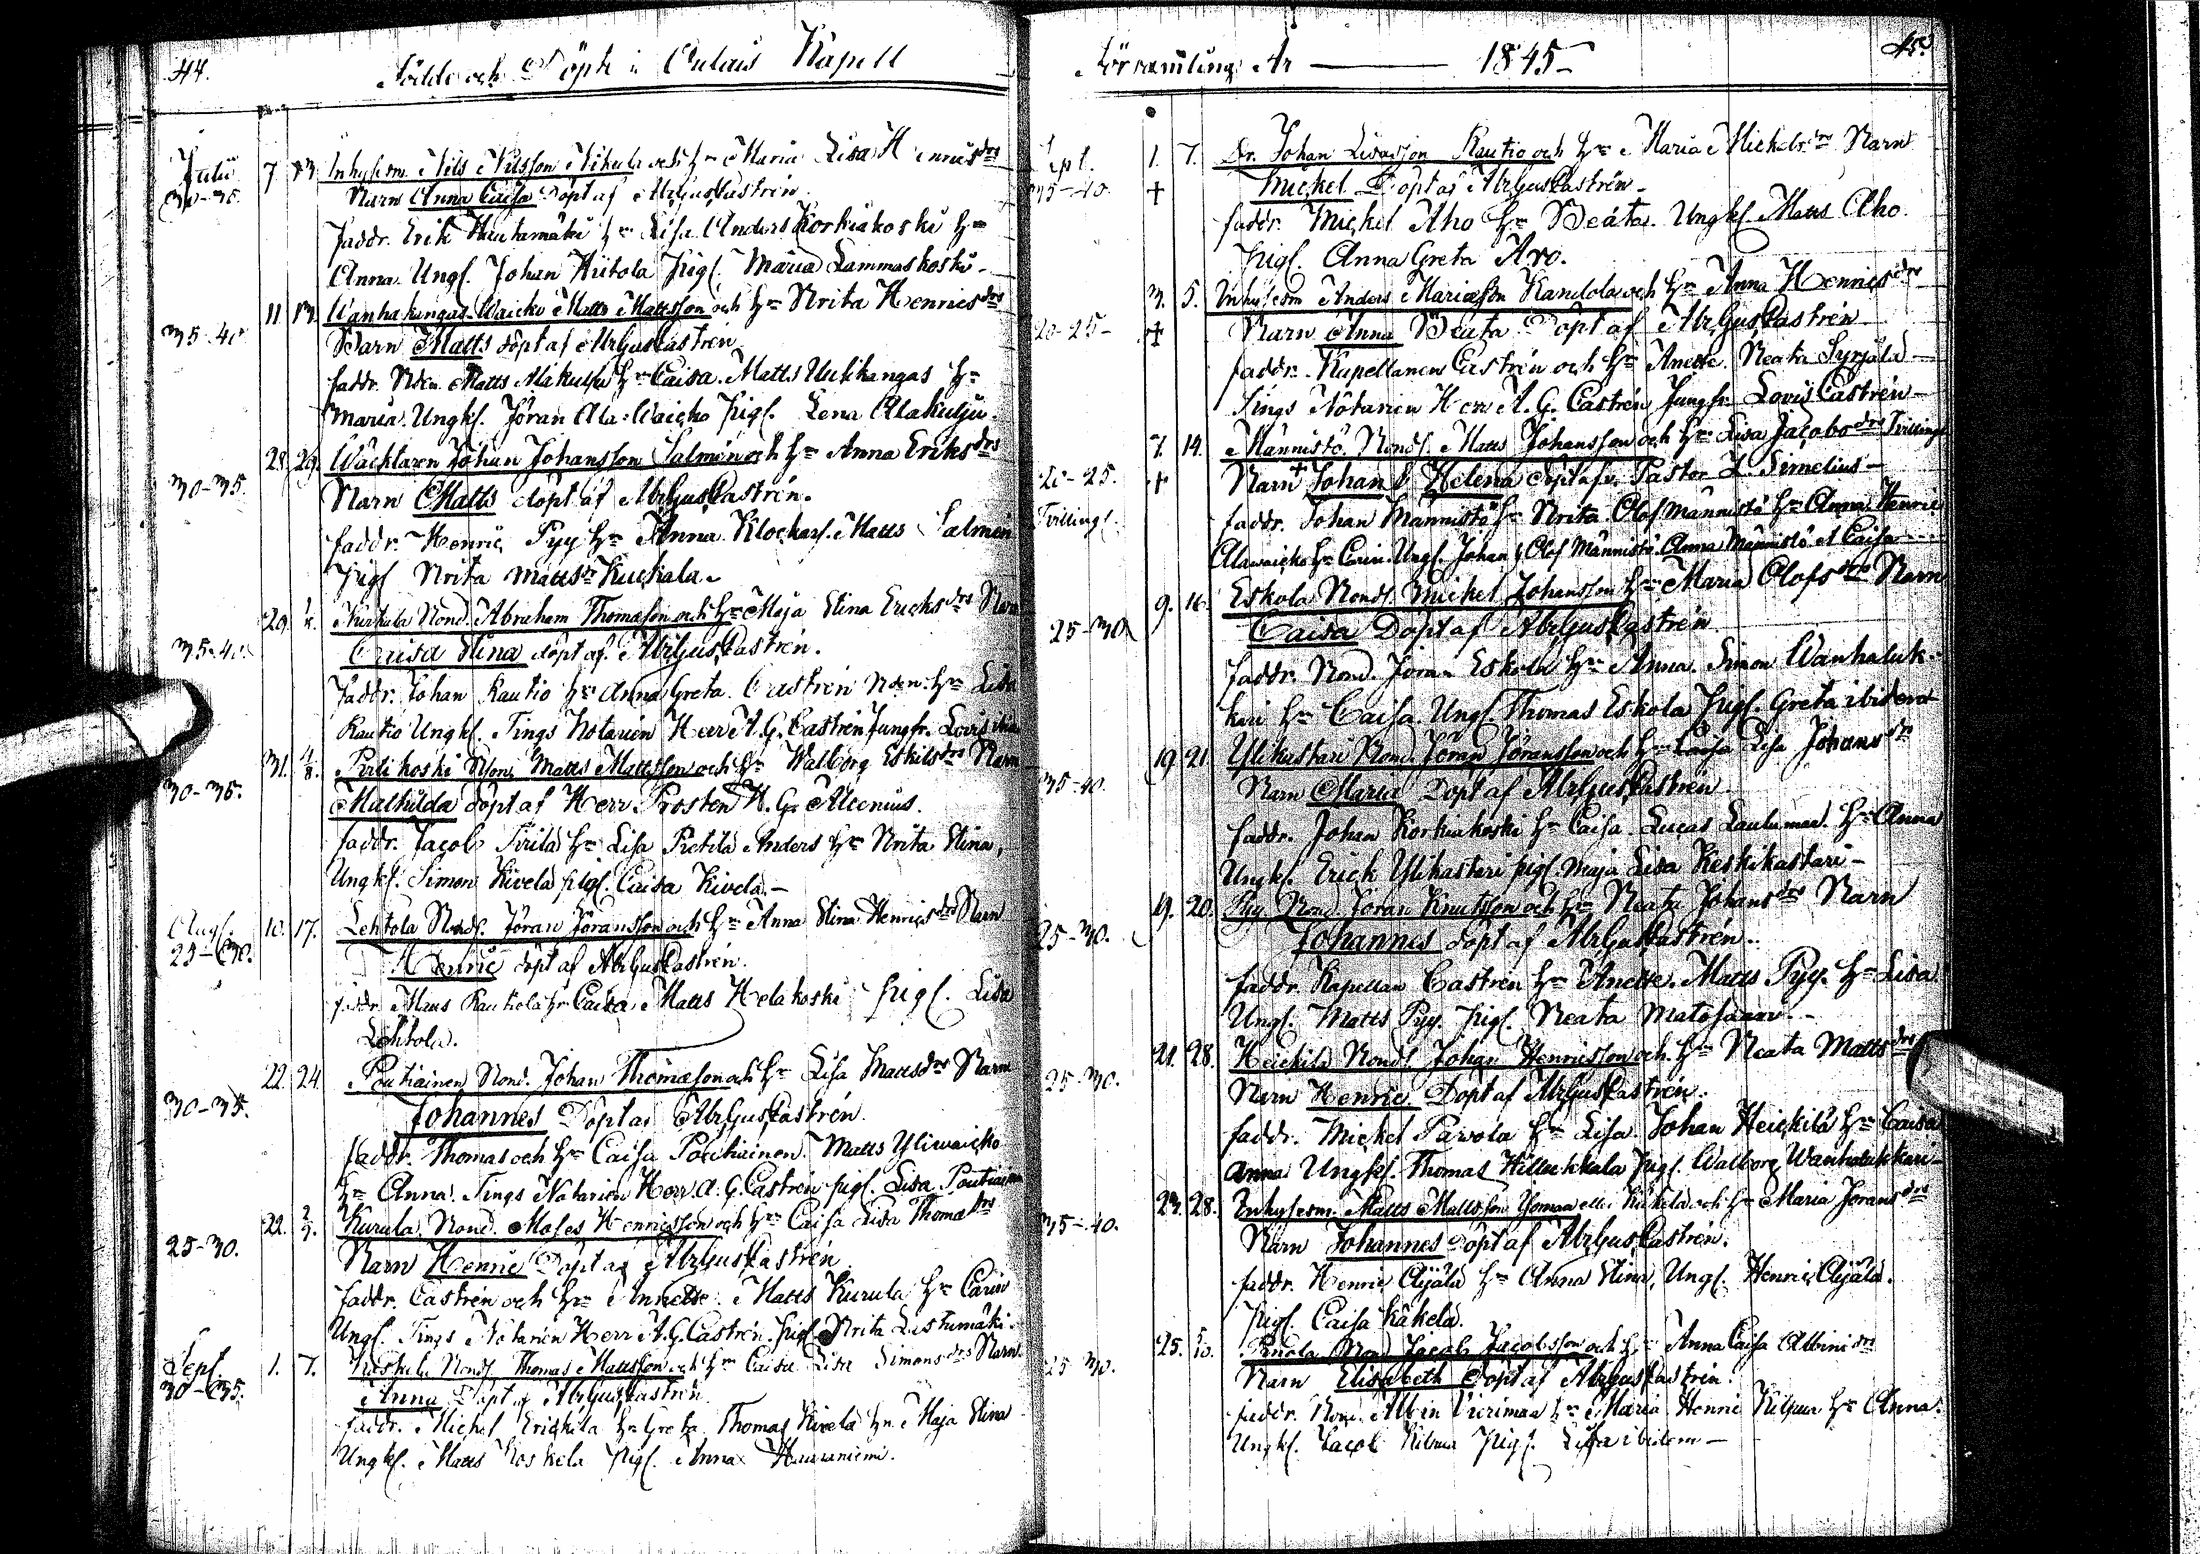 44.
Födde och Döpte i Oulais Kapell
Julii 7 13. Inhysesm. Nils Nilsson Nikula och h:u Maria Lisa Henrics drs
30-35. Barn Anna Caisa Döpt af Abr. Gust. Castrén.
faddr. Erik Hautamäki h:u Lisa. Anders Korkiakoski h:u
Anna. Ungk. Johan Hiitola pig. Maria Lammaskoski.
11 13. Wanhakangas Waicko Matts Mattsson och h:u Brita Henrics drs
35-40 Barn Matts döpt af Abr. Gust. Castrén.
faddr. Matts Alakulju h:u Caisa. Matts Uusikangas h:u
Maria. Ungk. Jöran Ala-Waicko pig. Lena Alakulju.
28. 29. Wäcktaren Johan Johansson Salmén och h:u Anna Eriks drs
30-35. Barn Matts döpt af Abr. Gust. Castrén.
faddr. Henric Pyy h:u Anna. Klockars. Matts Salmén
pig. Brita Matts dr Kuckala.
29. Kurkula Bond. Abraham Thomasson och h:u Maja Stina Erichs drs Barn
35-40. Caisa Stina döpt af Abr. Gust. Castrén.
faddr. Johan Rautio h:u Anna Greta. Castrén h:u Lisa
Rautio Ungk. Tings Notarien Herr A. G. Castrén Jungfr. Lovis
31. 4/8. Pirilikoski Matts Mattsson och h:u Walborg Eskils drs Barn
30-35. Mathilda döpt af Herr Prosten H. G. Alcenius.
faddr. Jacob Pirilä h:u Lisa Pietilä Anders h:u Brita Stina,
Ungk. Simon Kivelä pig. Caisa Kivelä.
Aug. 10. 17. Lehtola Bond. Jöran Jöransson och h:u Anna Stina Henrics drs Barn
25-30. Henric döpt af Abr. Gust. Castrén.
faddr. Matts Rautiola h:u Caisa. Matts Helakoski pig. Lisa
Lehtola.
22. 24. Poutiainen Bond. Johan Thomasson och h:u Lisa Matts drs Barn
30-35. Johannes Döpt af Abr. Gust. Castrén.
faddr. Thomas och h:u Caisa Poutiainen. Matts Yliwaicko
h:u Anna. Tings Notarien Herr A. G. Castrén pig. Lisa Poutiainen
22. 2/9. Kurula Bond. Moses Henricsson och h:u Caisa Lisa Thomas drs
25-30. Barn Henric Döpt af Abr. Gust. Castrén
faddr. Castrén och h:u Annette. Matts Kurula h:u Carin
Ungk. Tings Notarien Herr A. G. Castrén. pig. Brita Lastumäki.
Sept. 1. 7. Koskela Bond. Thomas Mattsson och h:u Caisa Lisa Simons drs Barn.
30-35. Anna Döpt af Abr. Gust. Castrén
faddr. Michel Erickilä h:u Greta. Thomas Kivelä h:u Maja Stina
Ungk. Matts Koskela pig. Anna Hauraniemi.
Församling År 1845 45.
Sept. 1. 7. Dr. Johan Lisasson Rautio och h:u Maria Michels drs Barn
35-40. + Michel Döpt af Abr. Gust. Castrén.
faddr. Michel Aho h:u Beata. Ungk. Matts Aho.
pig. Anna Greta Aro.
3. 5. Inhysesm. Anders Mariasson Kandola och h:u Anna Henrics drs
20-25- + Barn Anna Beata Döpt af Abr. Gust. Castrén
faddr. Kapellanen Castrén och h:u Anette. Beata Syrjälä
Tings Notarien Herr A. G. Castrén Jungfr. Lovis Castrén
7. 14. Männistö Bond. Matts Johansson och h:u Lisa Jacobs drs Tvillingar
20-25. + Barn + Johan & Helena döpt af v. Pastor L. Simelius
Tvilling. faddr. Johan Männistö h:u Brita. Olof Männistö h:u Anna. Henric
Alawaicko h:u Carin. Ungk. Johan & Olof Männistö Anna Männistö et Caisa
9. 16. Eskola Bond. Michel Johansson h:u Maria Olofs dris Barn
25-30 Caisa Döpt af Abr. Gust. Castrén
faddr. Bond. Jöran Eskola h:u Anna. Simon Wanhaluk-
kari h:u Caisa. Ungk. Thomas Eskola pig. Greta ibidem
19. 21. Ylikastari Bond. Jöran Jöransson och h:u Caisa Lisa Johans dr
35-40. Barn Maria Döpt af Abr. Gust. Castrén
faddr. Johan Korkiakoski h:u Caisa. Lucas Laulumaa. h:u Anna
Ungk. Erick Ylikastari pig. Maja Lisa Keskikastari
19. 20. Pyy Bond. Jöran Knutsson och h:u Beata Johans drs Barn
25-30. Johannes döpt af Abr. Gust. Castrén.
faddr. Kapellan Castrén h:u Anette. Matts Pyy. h:u Lisa
Ungk. Matts Pyy. pig. Beata Matosaari.
21. 28. Heickilä Bond. Johan Henricsson och h:u Beata Matts drs
25-30. Barn Henric Döpt af Abr. Gust. Castrén.
faddr. Michel Pavola h:u Lisa. Johan Heickilä h:u Caisa
Anna Ungk. Thomas Hilluckkala pig. Walborg Wanhalukkari
23. 28. Inhysesm. Matts Mattsson Yomaa eller Käkelä och h:u Maria Jörans drs
35-40. Barn Johannes Döpt af Abr. Gust. Castrén.
faddr. Henric Äijälä h:u Anna Stina, Ungk. Henric Äijälä.
pig. Caisa Käkelä.
25. 5/10. Pinola Bond. Jacob Jacobsson och h:u Anna Caisa Albins drs
25-30. Barn Elisabeth Döpt af Abr. Gust. Castrén.
faddr. Bond. Albin Vierimaa h:u Maria Henric Kilpua h:u Anna.
Ungk. Jacob Kilpua pig. Lisa ibidem